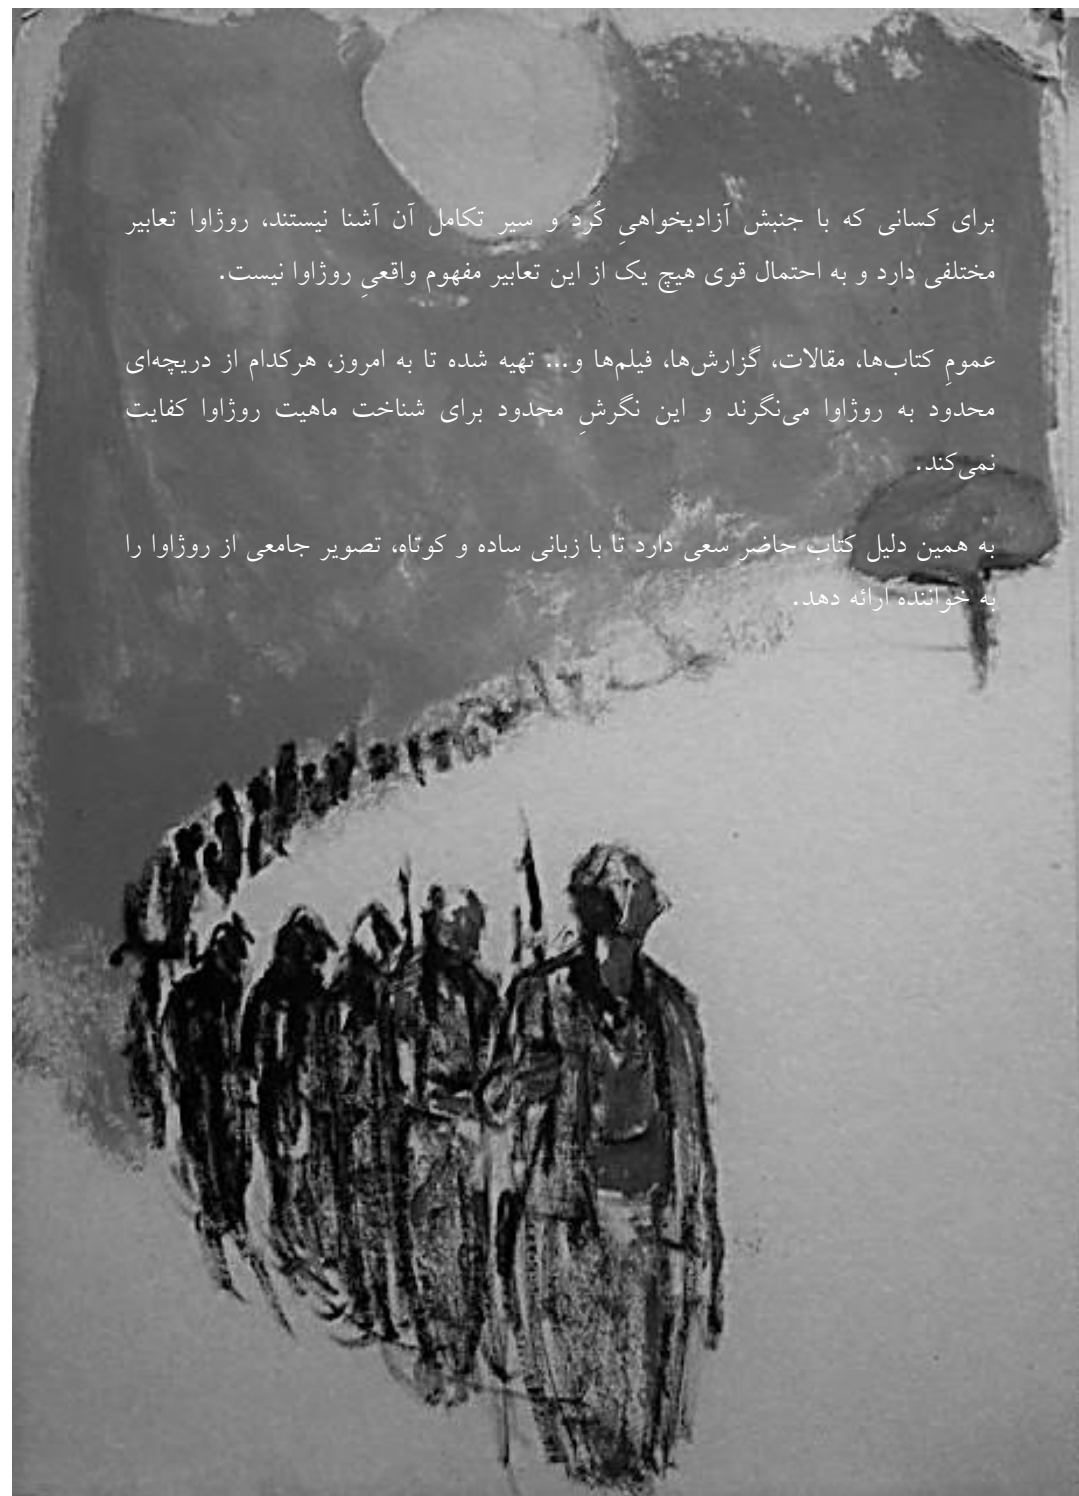 برای کسانی که با جنبش آزادیخواهیِ کُرد و سیر تکامل آن آشنا نیستند، روژاوا تعابیر
مختلفی دارد و به احتمال قوی هیچ یک از این تعابیر مفهوم واقعیِ روژاوا نیست.
عمومِ کتاب‌ها، مقالات، گزارش‌ها، فیلم‌ها و... تهیه شده تا به امروز، هرکدام از دریچه‌ای
محدود به روژاوا می‌نگرند و این نگرشِ محدود برای شناخت ماهیت روژاوا کفایت
نمی‌کند.
به همین دلیل کتاب حاضر سعی دارد تا با زبانی ساده و کوتاه، تصویر جامعی از روژاوا را
به خواننده ارائه دهد.